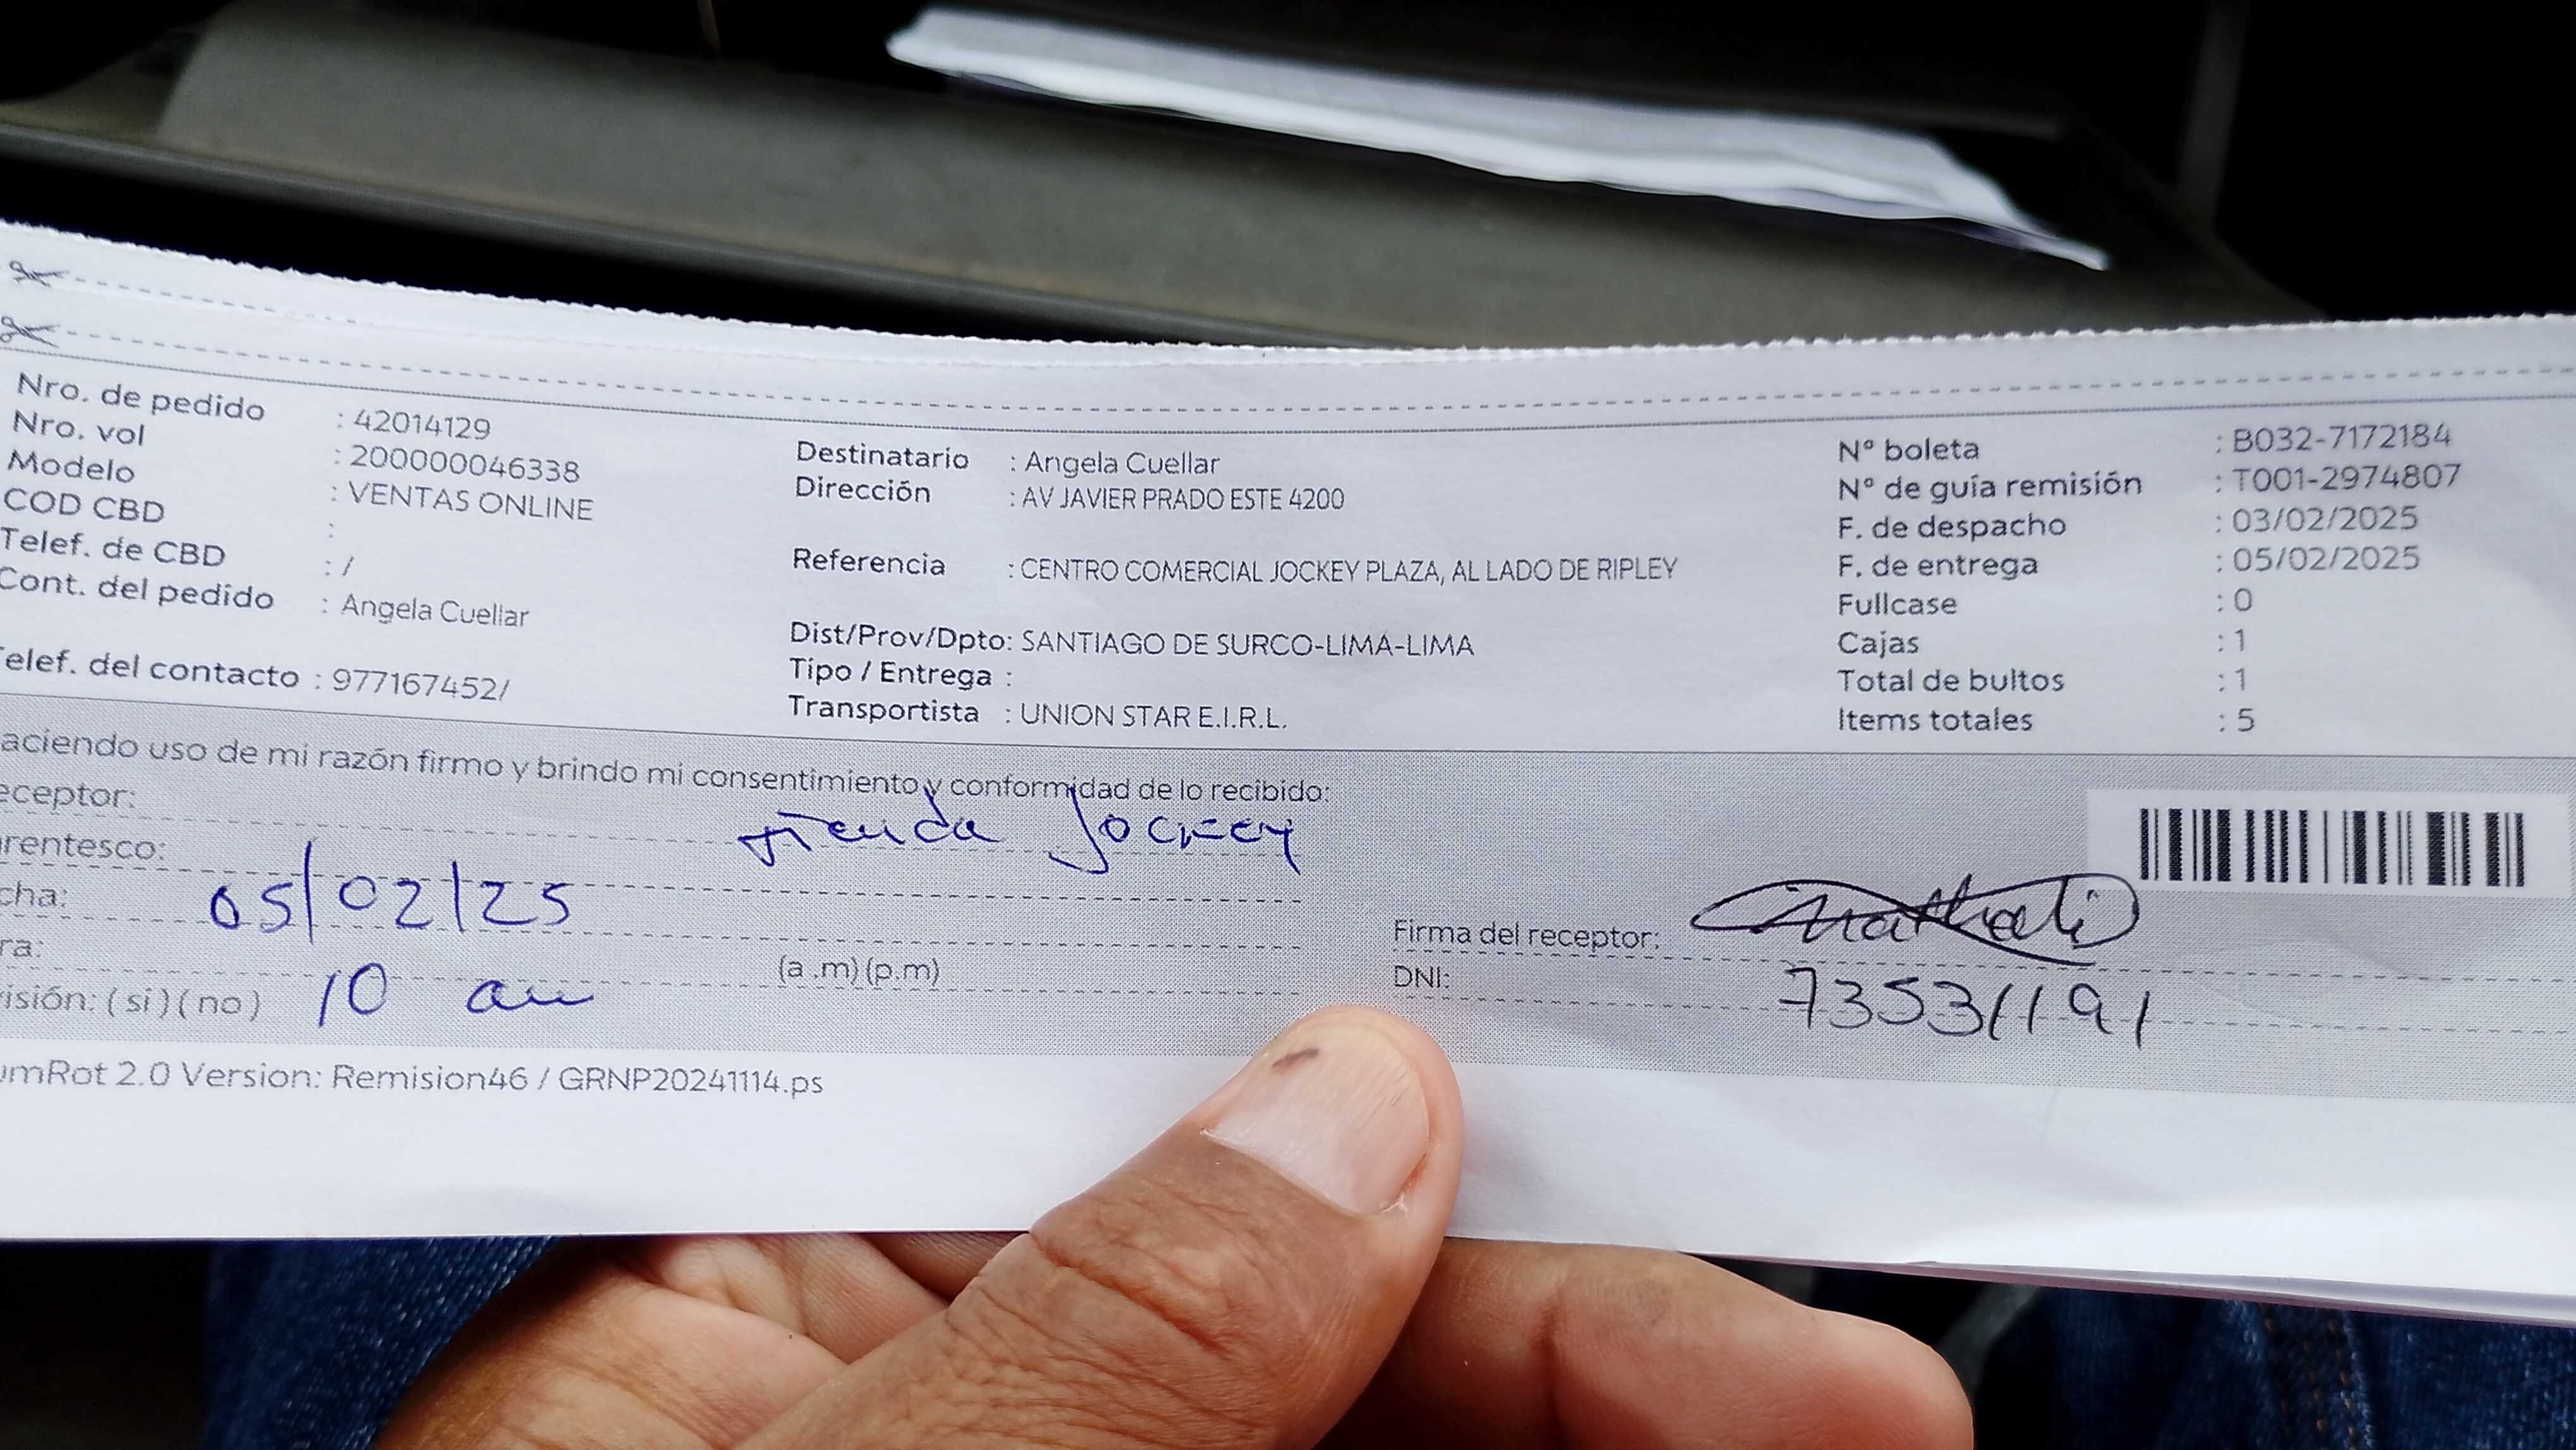 Nro. de pedido : 42014129
Nro. vol : 200000046338
Modelo : VENTAS ONLINE
COD CBD :
Telef. de CBD : /
Cont. del pedido : Angela Cuellar
Telef. del contacto : 977167452/
Destinatario : Angela Cuellar
Dirección : AV JAVIER PRADO ESTE 4200
Referencia : CENTRO COMERCIAL JOCKEY PLAZA, AL LADO DE RIPLEY
Dist/Prov/Dpto: SANTIAGO DE SURCO-LIMA-LIMA
Tipo / Entrega :
Transportista : UNION STAR E.I.R.L.
N° boleta : B032-7172184
N° de guía remisión : T001-2974807
F. de despacho : 03/02/2025
F. de entrega : 05/02/2025
Fullcase : 0
Cajas : 1
Total de bultos : 1
Items totales : 5
aciendo uso de mi razón firmo y brindo mi consentimiento y conformidad de lo recibido:
eceptor: tienda Jockey
rentesco:
cha: 05/02/25
ra: 10 am (a .m) (p.m)
isión: ( si ) ( no )
Firma del receptor: Nathali
DNI: 73531191
umRot 2.0 Version: Remision46 / GRNP20241114.ps